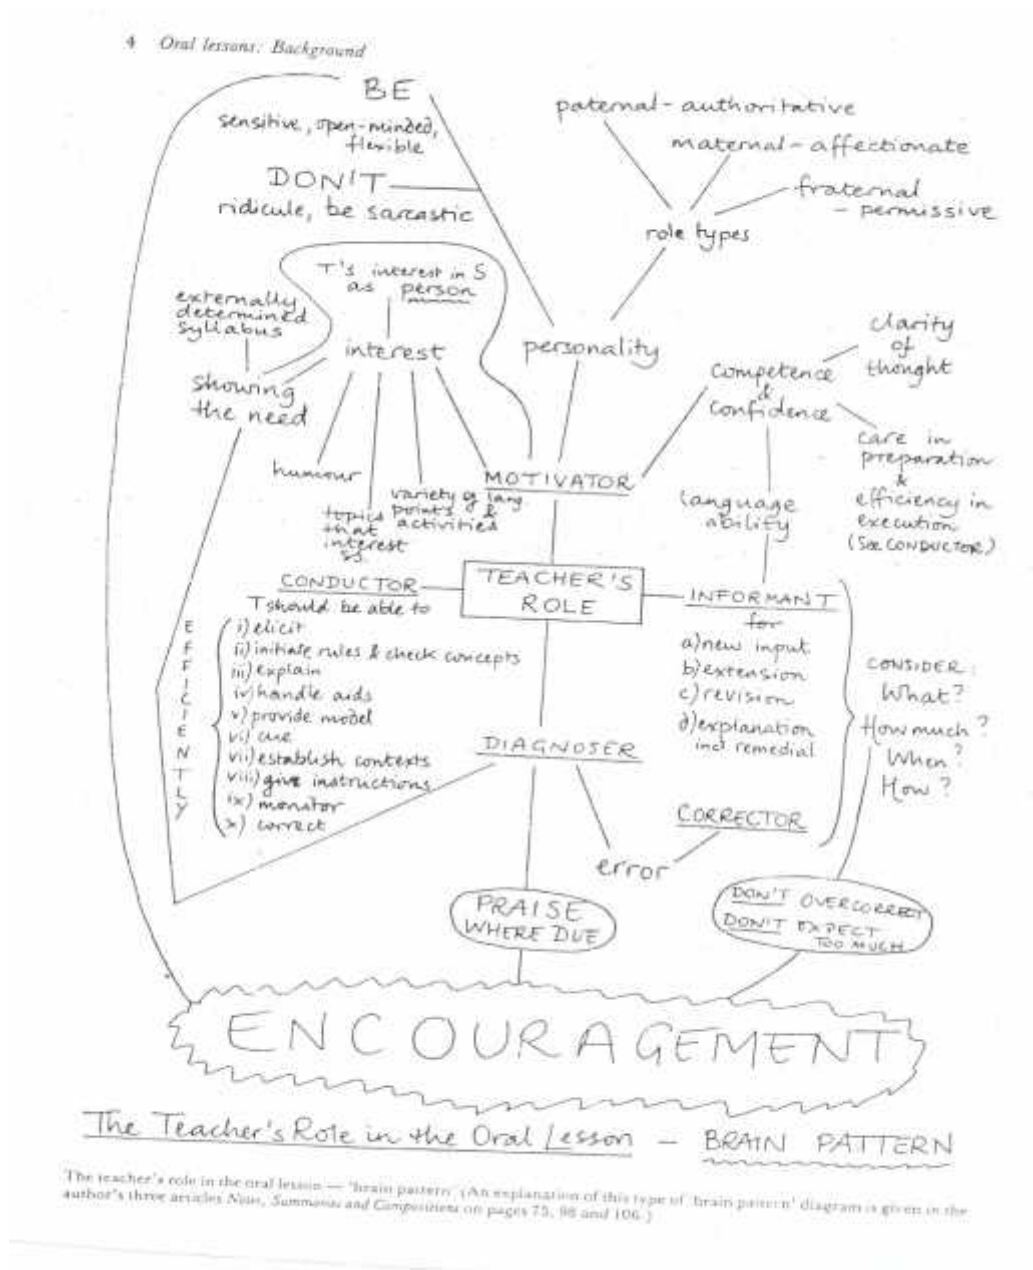 4 Oral lessons: Background
BE
sensitive, open-minded,
flexible
DON'T
ridicule, be sarcastic
paternal - authoritative
maternal - affectionate
fraternal
- permissive
role types
T's interest in S
as person
externally
determined
syllabus
interest
personality
showing
the need
clarity
of
thought
competence
&
confidence
care in
preparation
&
efficiency in
execution
(See CONDUCTOR)
humour
topics
that
interest
Ss.
variety of lang.
points &
activities
MOTIVATOR
language
ability
TEACHER'S
ROLE
CONDUCTOR
T should be able to
EFFICIENTLY
i) elicit
ii) initiate rules & check concepts
iii) explain
iv) handle aids
v) provide model
vi) cue
vii) establish contexts
viii) give instructions
ix) monitor
x) correct
INFORMANT
for
a) new input
b) extension
c) revision
d) explanation
incl remedial
CONSIDER:
What?
How much?
When?
How?
DIAGNOSER
CORRECTOR
error
PRAISE
WHERE DUE
DON'T OVERCORRECT
DON'T EXPECT
TOO MUCH
ENCOURAGEMENT
The Teacher's Role in the Oral Lesson - BRAIN PATTERN
The teacher's role in the oral lesson — 'brain pattern'. (An explanation of this type of 'brain pattern' diagram is given in the
author's three articles Notes, Summaries and Compositions on pages 75, 98 and 106.)